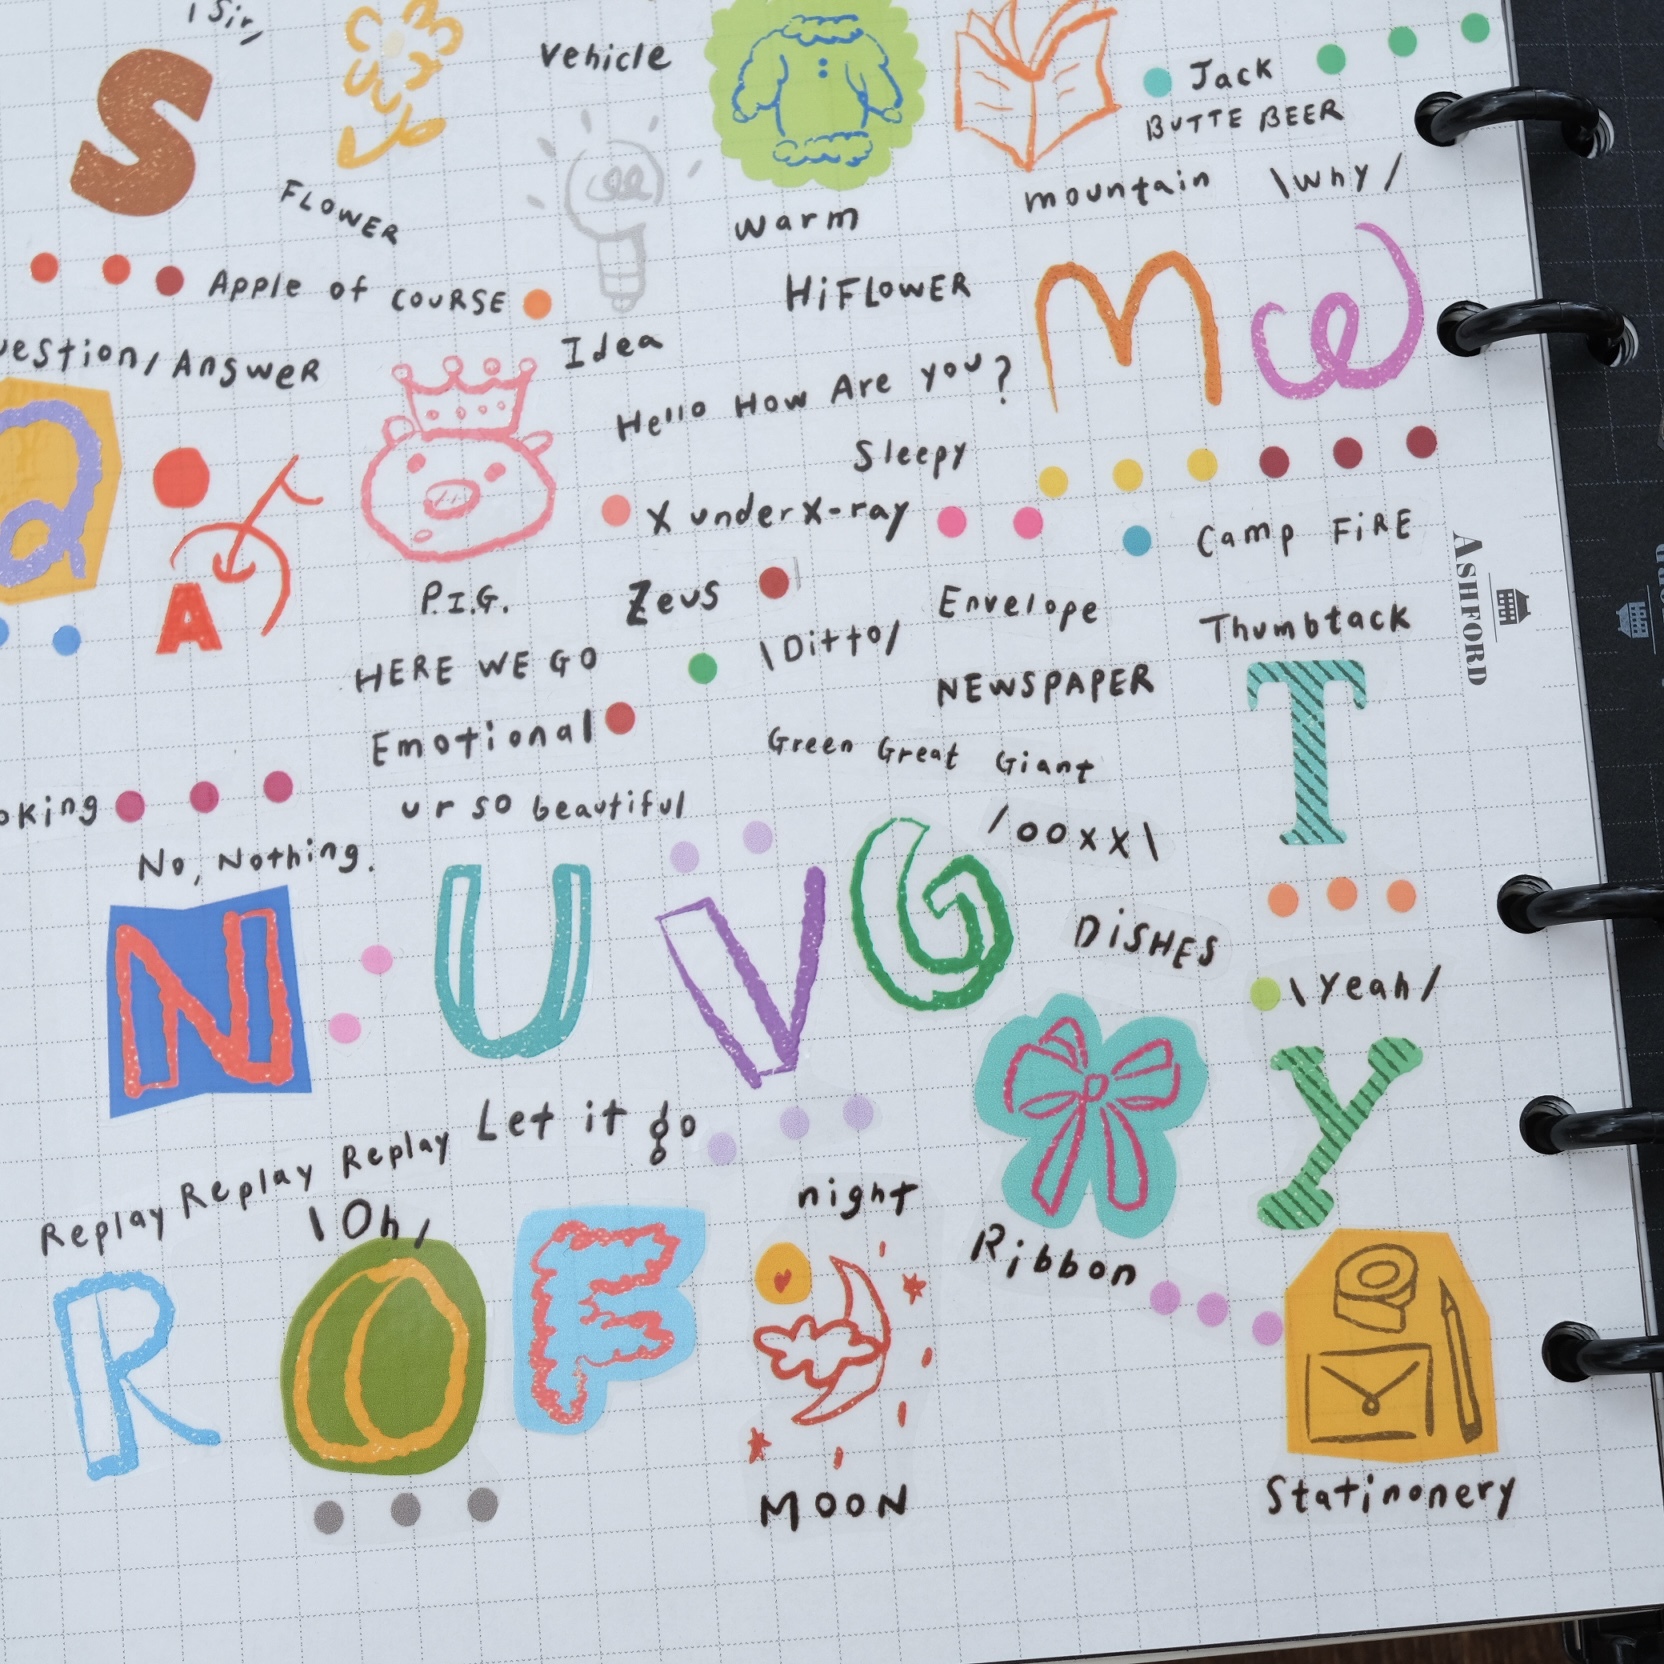 \ Sir,
vehicle
Jack
BUTTE BEER
S
FLOWER
warm
mountain
\why/
Apple of COURSE
HiFLOWER
M
W
uestion/AnsweR
Idea
Hello How Are you?
Sleepy
Q
A
X under X-ray
Camp FiRE
P.I.G.
Zeus
Envelope
Thumbtack
ASHFORD
HERE WE GO
\Ditto/
NEWSPAPER
T
Emotional
Green Great Giant
oking
ur so beautiful
/ooxx\
No, Nothing.
N
U
V
G
DiSHES
\Yeah/
Y
Let it go
Replay Replay Replay
night
\Oh/
Ribbon
R
O
F
MOON
Statinonery